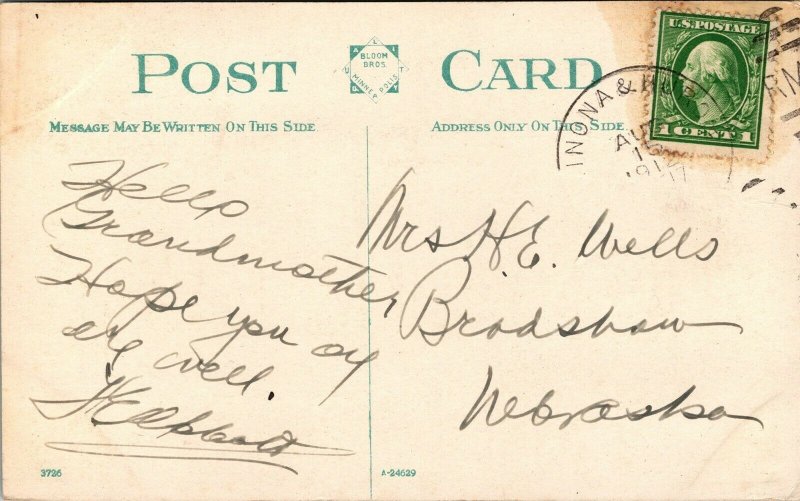 POST CARD
BLOOM BROS.
MINNEAPOLIS
MESSAGE MAY BE WRITTEN ON THIS SIDE
ADDRESS ONLY ON THIS SIDE
U.S. POSTAGE
1 CENT 1
INONA &
AU
191
17
RM
Hello
Grandmother
Hope you ar
are well.
Abbott
Mrs H. E. Wells
Bradshaw
Nebraska
3726
A-24629